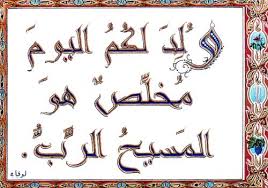 وُلدَ لكُمُ اليومَ
مُخلِّصٌ هوَ
المسيحُ الرَّبُّ.
لوقا٢